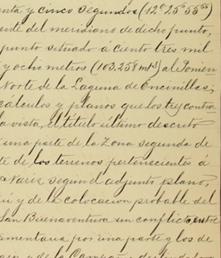 enta y cinco segundos (12°25'55")
ente del meridiano de dicho punto,
punto situado a ciento tres mil
y ocho metros (103.258 mts) al Poniente
Norte de la Laguna de Encinillas;
calculos y planos que los
la vista, el titulo último descrito
una parte de la Zona segunda de
te de los terrenos pertenecientes á
segun el adjunto plano,
ui y de la colocacion probable del
San Buenaventura sin conflicto, entre
amentaria por una parte y los de